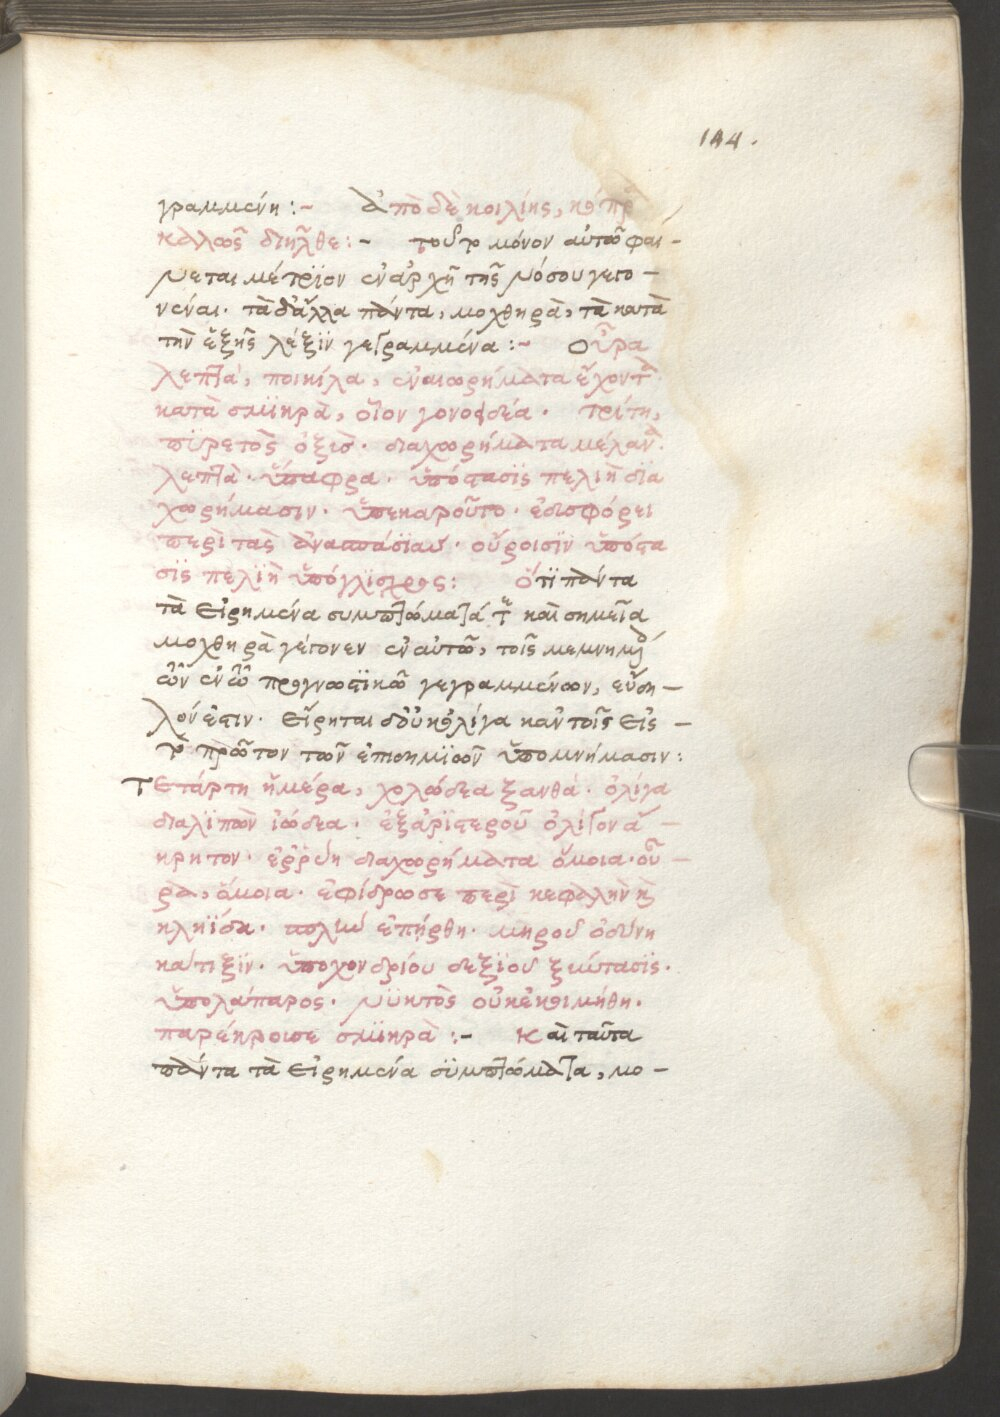 144.
γραμμένη :- ἀπὸ δὲ κοιλίης, κόπρ
καλῶς διῆλθε :- τοῦτο μόνον αὐτῶ φαί-
νεται μέτριον ἐν ἀρχῆ τῆς νόσου γεγο-
νέναι. τὰ δ' ἄλλα πάντα, μοχθηρὰ, τὰ κατὰ
τὴν ἑξῆς λέξϊν γεγραμμένα :- Οὖρα
λεπτὰ, ποικίλα, ἐναιωρήματα ἔχοντ
κατὰ σμϊκρὰ, οἷον γονοειδέα. τρίτη,
πϋρετὸς ὀξὺς. διαχωρήματα μέλαν
λεπτὰ. ὕπαφρα. ὑπόστασϊς πελιὴ δια
χωρήμασιν. ὑπεκαροῦτο. ἐδυσφόρει
περὶ τὰς ἀναστάσϊας. οὔροισϊν ὑπόστα
σϊς πελϊὴ ὑπόγλϊσχρος : Ὅτϊ πάντα
τὰ εἰρημένα συμπτώματά τε καὶ σημεῖα
μοχθηρὰ γέγονεν ἐν αὐτῶ, τοῖς μεμνημέ
ὧν ἐν τῶ προγνωστϊκῶ γεγραμμένων, εὔδη-
λόν ἐστιν. εἴρηται δ' οὐκ ὀλίγα κἀν τοῖς εἰς -
τὸ πρῶτον τῶν ἐπιδημϊῶν ὑπομνήμασιν :
Τετάρτη ἡμέρα, χολώδεα ξανθά. ὀλίγα
διαλϊπὼν ἰώδεα. ἐξ ἀρϊστεροῦ ὀλίγον ἄ-
κρητον. ἐρρύη διαχωρήματα ὅμοια. οὖ-
ρα, ὅμοια. ἐφίδρωσε περὶ κεφαλὴν κὶ
κληϊδα. σπλὴν ἐπήρθη. μηροῦ ὀδύνη
κατ' ιξϊν. ὑποχονδρίου δεξϊοῦ ξύντασϊς.
ὑπολάπαρος. νϋκτὸς οὐκ ἐκοιμήθη.
παρέκρουσε σμϊκρὰ :- Καὶ ταῦτα
πάντα τὰ εἰρημένα σϋμπτώματα, μο-